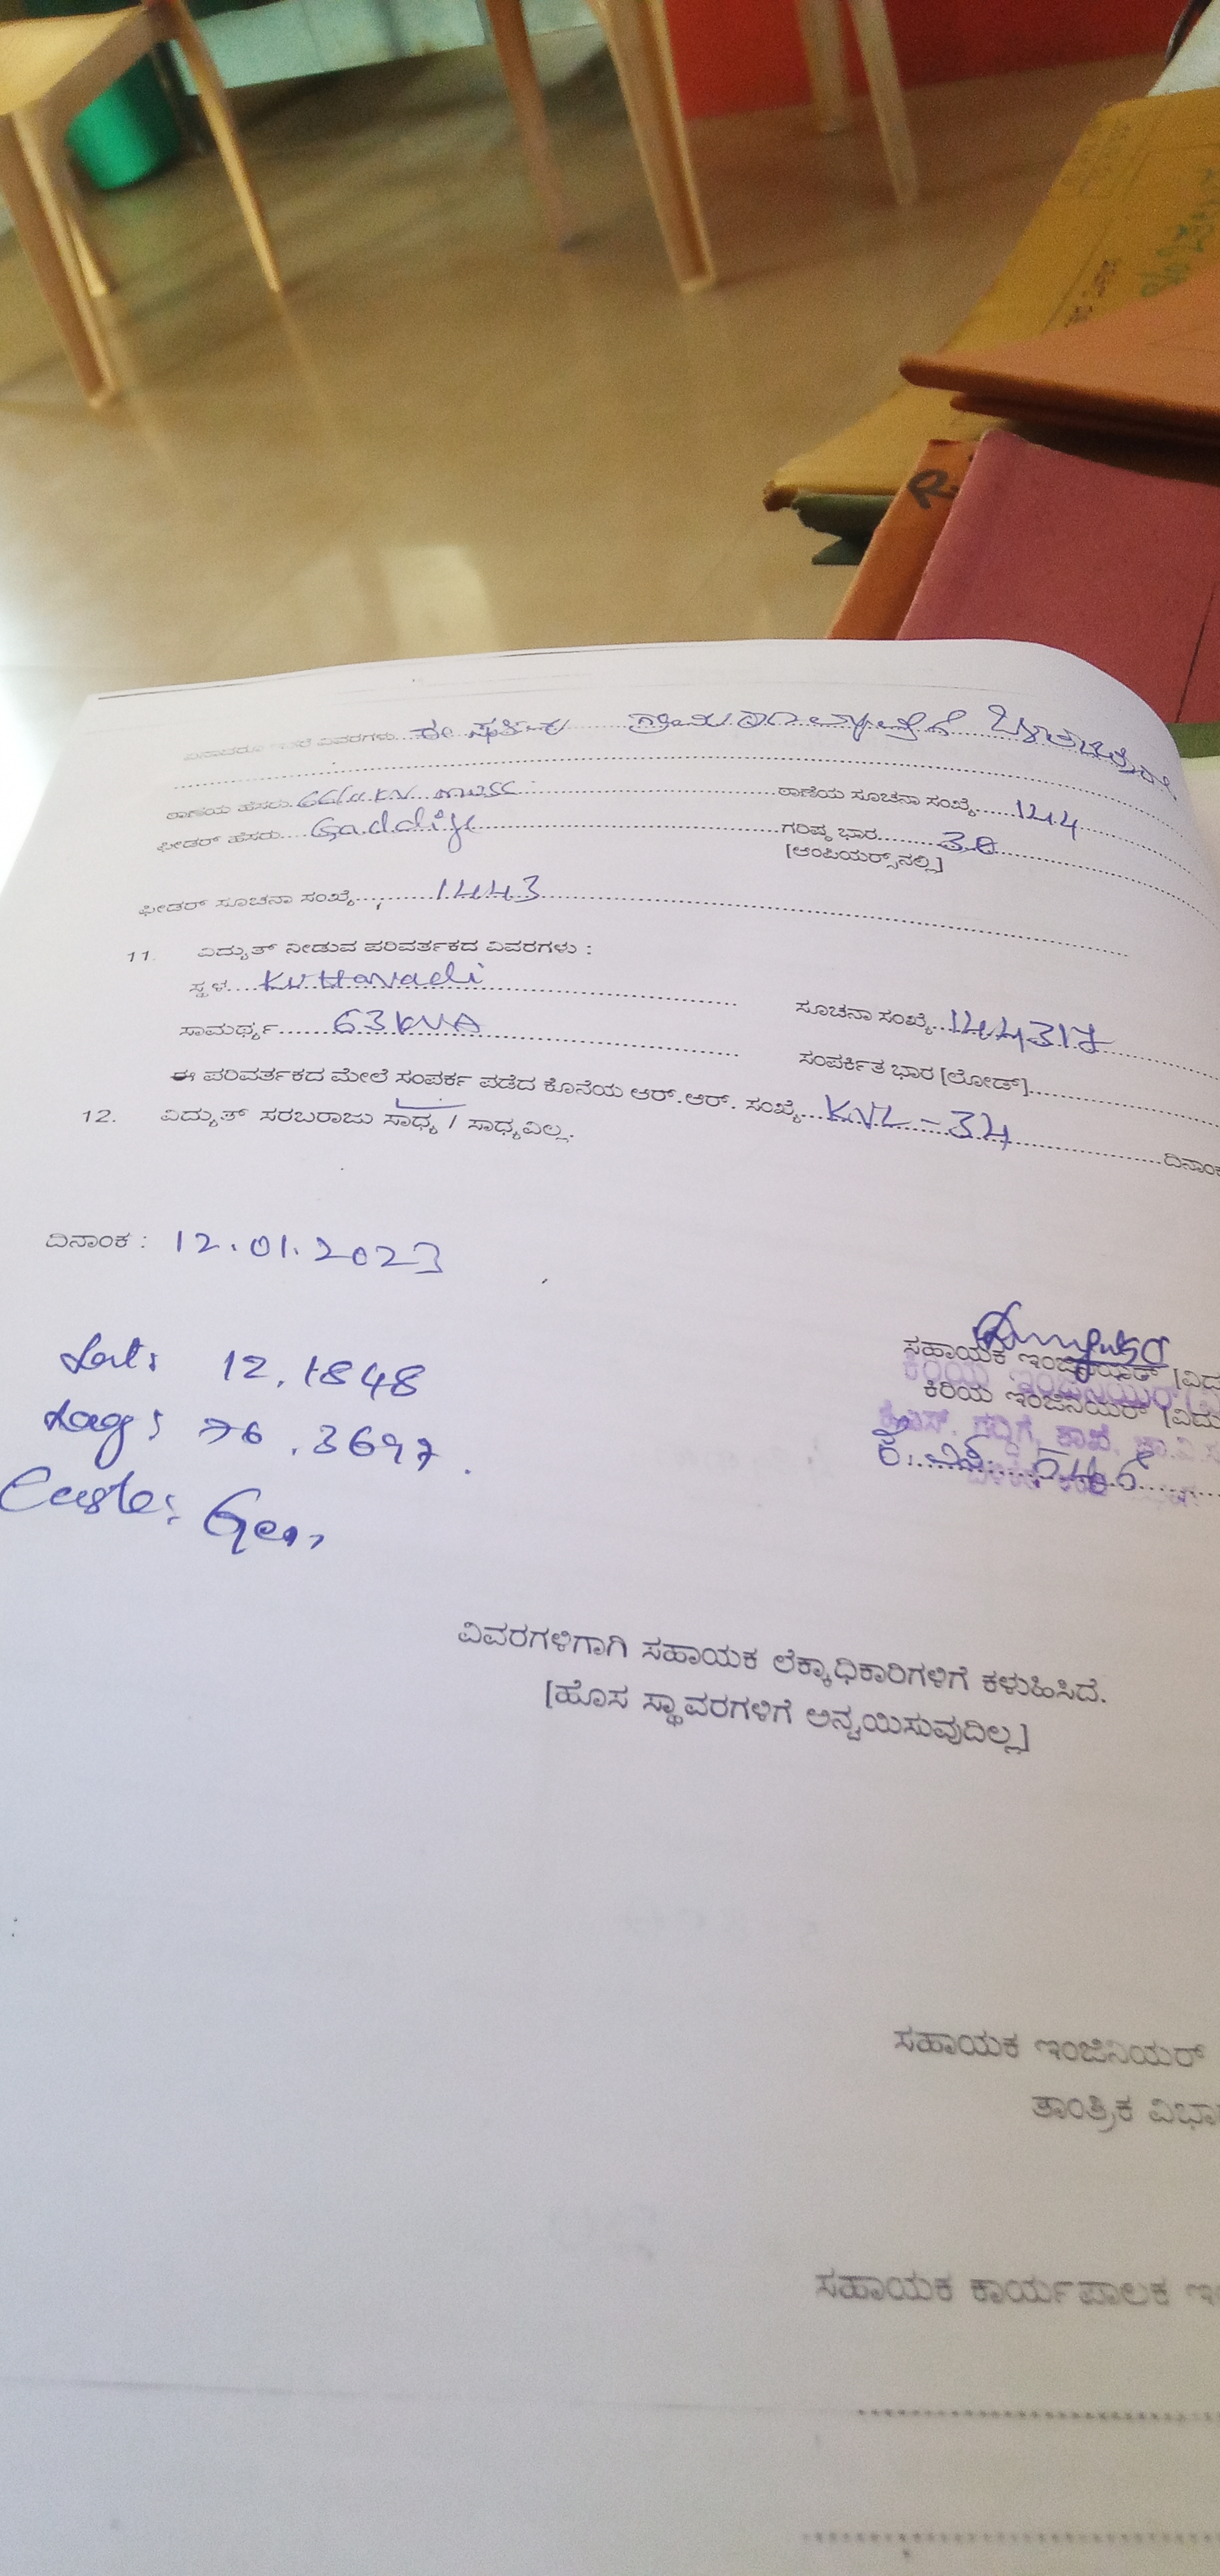 ವಿವರಗಳು
ಠಾಣೆಯ ಹೆಸರು 66/11 KV ಠಾಣೆಯ ಸೂಚನಾ ಸಂಖ್ಯೆ 144
ಫೀಡರ್ ಹೆಸರು Gaddige ಗರಿಷ್ಠ ಭಾರ 30
[ಆಂಪಿಯರ್ಸ್‌ನಲ್ಲಿ]
ಫೀಡರ್ ಸೂಚನಾ ಸಂಖ್ಯೆ 1443
11. ವಿದ್ಯುತ್ ನೀಡುವ ಪರಿವರ್ತಕದ ವಿವರಗಳು :
ಸ್ಥಳ Kuttavadi ಸೂಚನಾ ಸಂಖ್ಯೆ 144317
ಸಾಮರ್ಥ್ಯ 63 KVA ಸಂಪರ್ಕಿತ ಭಾರ [ಲೋಡ್]
ಈ ಪರಿವರ್ತಕದ ಮೇಲೆ ಸಂಪರ್ಕ ಪಡೆದ ಕೊನೆಯ ಆರ್.ಆರ್. ಸಂಖ್ಯೆ KVL-34
12. ವಿದ್ಯುತ್ ಸರಬರಾಜು ಸಾಧ್ಯ / ಸಾಧ್ಯವಿಲ್ಲ.
ದಿನಾಂಕ : 12.01.2023
Lat: 12.1848
Log: 76.3697
Caste: Gen
ಸಹಾಯಕ ಇಂಜಿನಿಯರ್
ಕಿರಿಯ ಇಂಜಿನಿಯರ್
ವಿವರಗಳಿಗಾಗಿ ಸಹಾಯಕ ಲೆಕ್ಕಾಧಿಕಾರಿಗಳಿಗೆ ಕಳುಹಿಸಿದೆ.
[ಹೊಸ ಸ್ಥಾವರಗಳಿಗೆ ಅನ್ವಯಿಸುವುದಿಲ್ಲ]
ಸಹಾಯಕ ಇಂಜಿನಿಯರ್
ತಾಂತ್ರಿಕ
ಸಹಾಯಕ ಕಾರ್ಯಪಾಲಕ